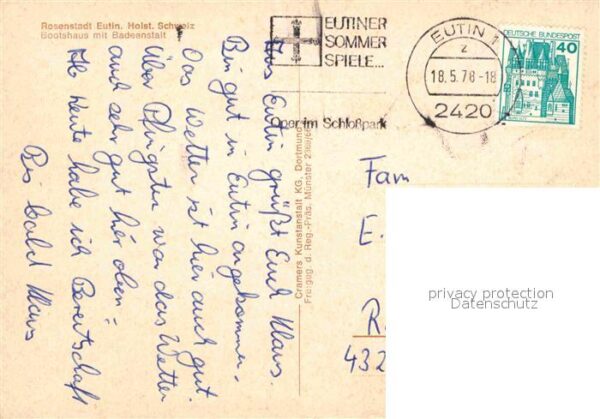 Rosenstadt Eutin, Holst. Schweiz
Bootshaus mit Badeanstalt
EUTINER
SOMMER
SPIELE...
oper im Schloßpark
EUTIN 1
z
18.5.78-18
2420
DEUTSCHE BUNDESPOST
40
Aus Eutin grüßt Euch Klaus.
Bin gut in Eutin angekommen.
Das Wetter ist hier auch gut.
Über Pfingsten war das Wetter
auch sehr gut hier oben.
Ab Heute habe ich Bereitschaft
Bis bald Klaus
Cramers Kunstanstalt KG, Dortmund
Freigeg. d. Reg.-Präs. Münster
Fam
E.
R
432
privacy protection
Datenschutz